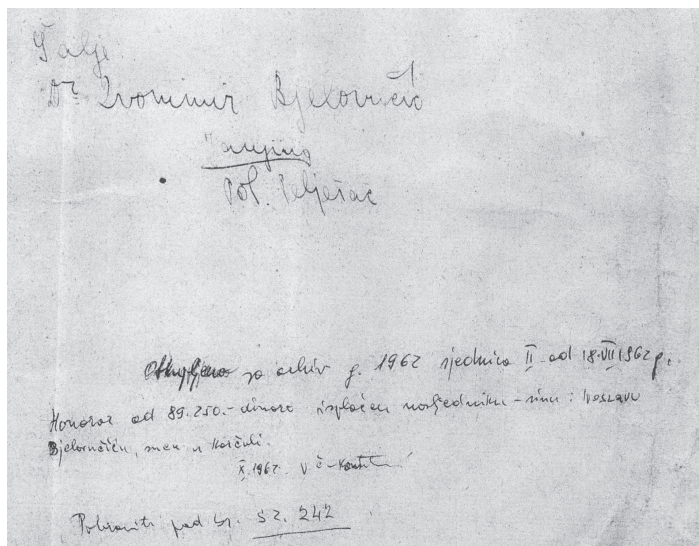 Šalje
Dr. Zvonimir Bjelovučić
Janjina
Pol. Pelješac
Otkupljeno za arhiv g. 1962 sjednica II od 18.VII 1962 g.
Honorar od 89.250.- dinara isplaćen nasljedniku - sinu : Ivoslavu
Bjelovučiću, u Korčuli.
X. 1962.
Pohraniti pod br. SZ. 242